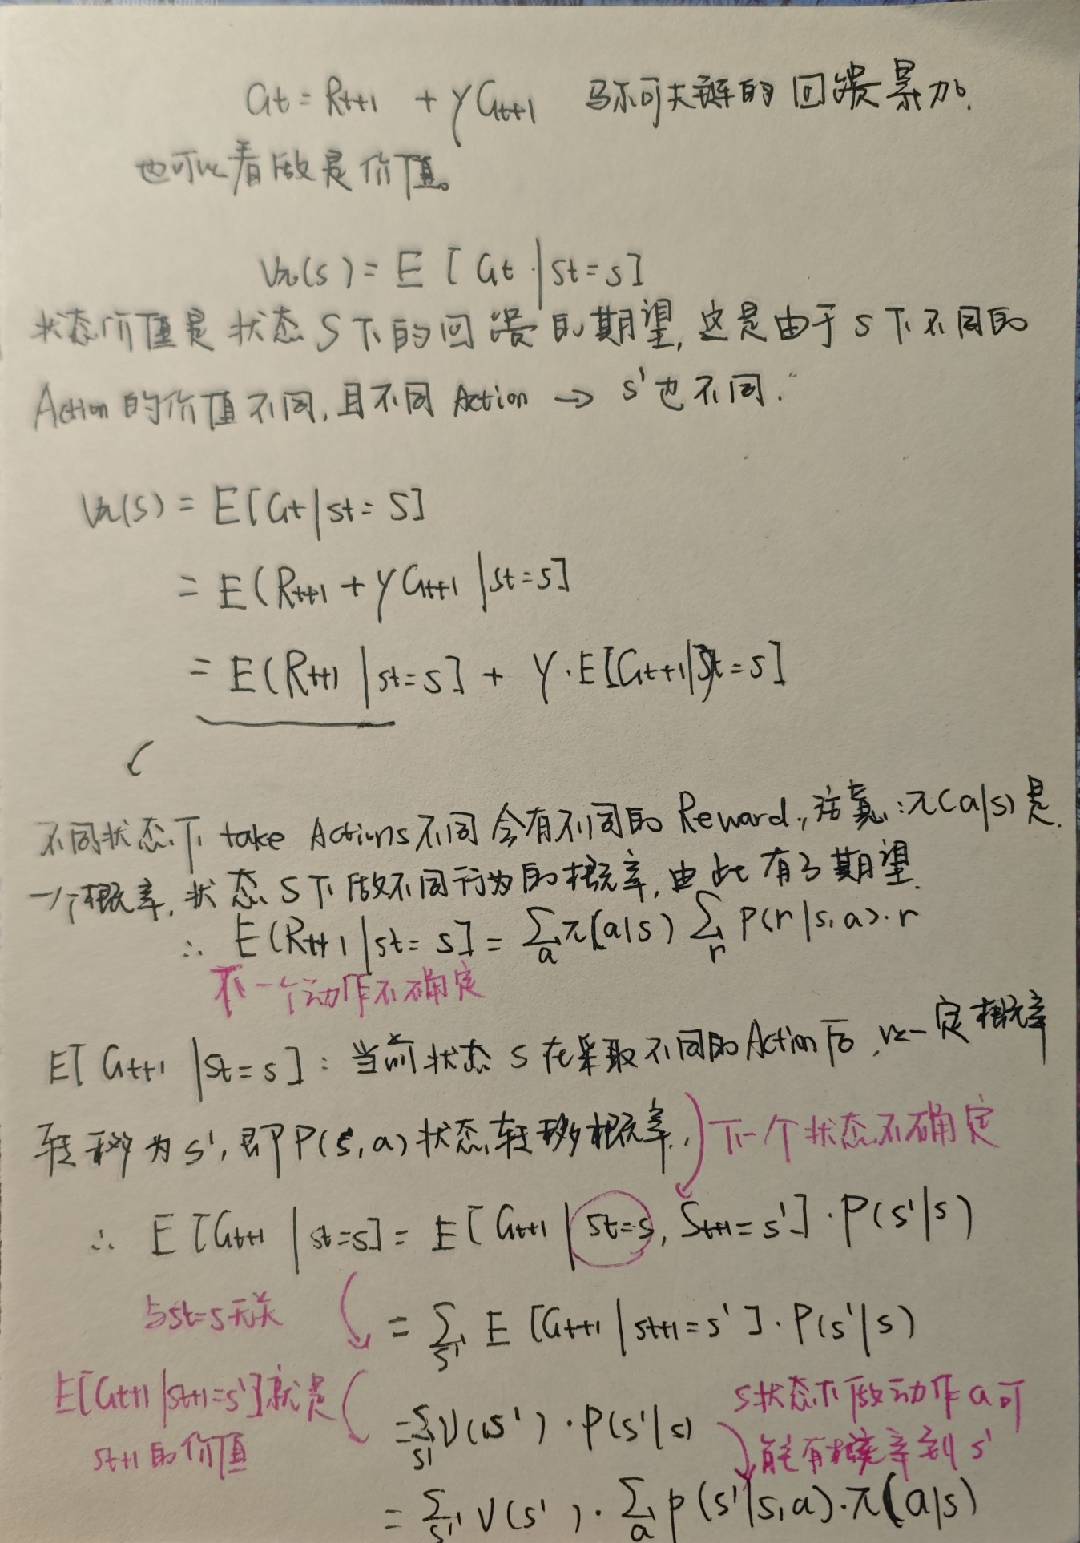 Gt = Rt+1 + γGt+1 马尔可夫链的回馈累加.
也可以看做是价值。
Vπ(s) = E [ Gt | St=s]
状态价值是状态S下的回馈的期望, 这是由于s下不同的
Action的价值不同, 且不同Action → s'也不同.
Vπ(s) = E[Gt | st = S]
= E(Rt+1 + γGt+1 | st=s]
= E(Rt+1 | st=s] + γ·E[Gt+1|St=s]
不同状态下 take Actions不同会有不同的Reward, 注意:π(a|s)是
一个概率, 状态S下做不同行为的概率, 由此有了期望.
∴ E(Rt+1 | st= s] = ∑a π(a|s) ∑r P(r|s,a)·r
下一个动作不确定
E[ Gt+1 | St=s ] : 当前状态 s 在采取不同的Action后, 以一定概率
转移为s', 即P(s,a)状态转移概率,
下一个状态不确定
∴ E [Gt+1 | st=s] = E [ Gt+1 | st=s, St+1=s'] · P(s'|s)
与st=s无关
= ∑s' E [Gt+1 | st+1=s' ] · P(s'|s)
E[Gt+1 |st+1=s']就是
st+1的价值
= ∑s' V(s') · P(s'|s)
s状态下做动作a可
能有概率到s'
= ∑s' V(s') · ∑a p(s'|s,a)·π(a|s)